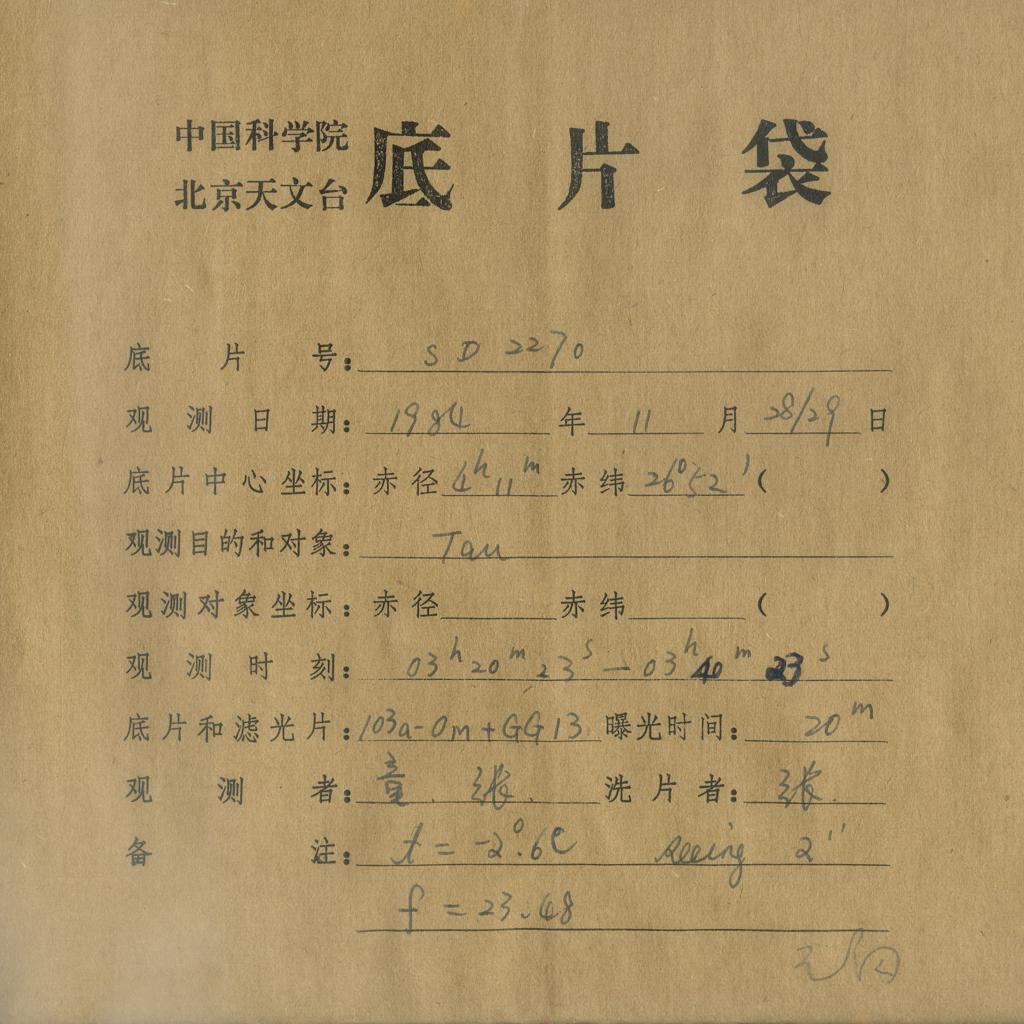 中国科学院
北京天文台
底片袋
底片号: SD2270
观测日期: 1984年 11月 28/29日
底片中心坐标: 赤径 4ʰ11ᵐ 赤纬 26°52′ ( )
观测目的和对象: Tau
观测对象坐标: 赤径 赤纬 ( )
观测时刻: 03ʰ20ᵐ23ˢ—03ʰ40ᵐ23ˢ
底片和滤光片: 103a-Om+GG13 曝光时间: 20ᵐ
观测者: 童. 张. 洗片者: 张.
备注: t = -2°.6C seeing 2″
f = 23.48